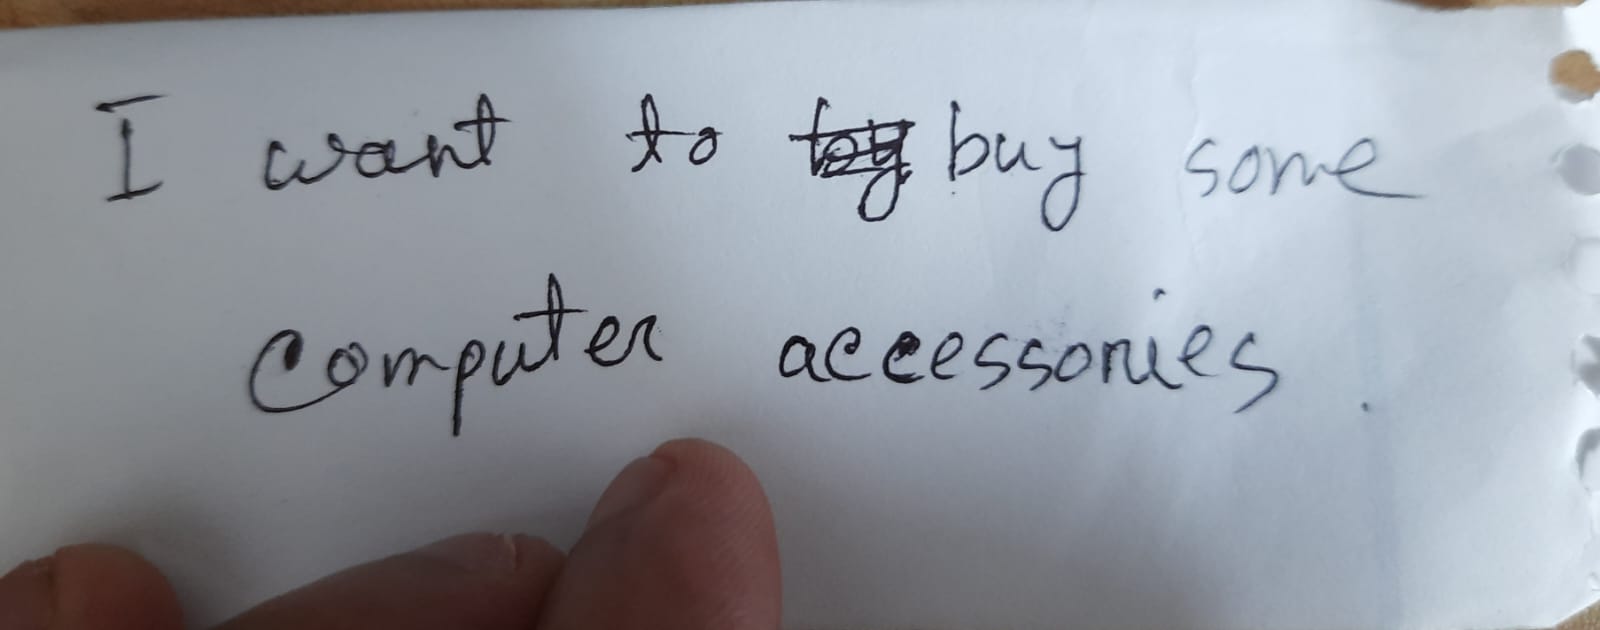 I want to buy some
computer accessories.